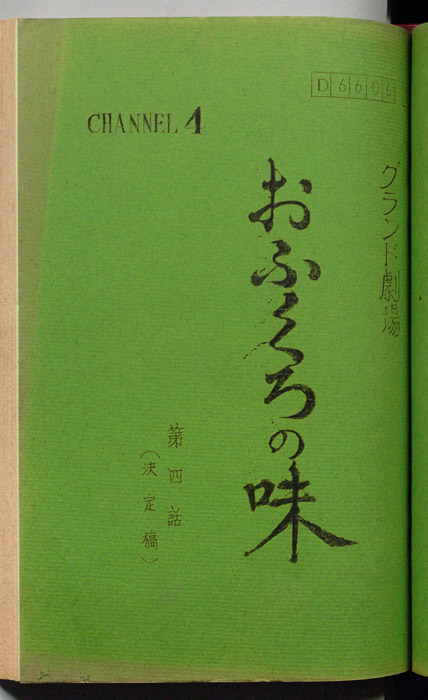 D6606
CHANNEL 4
グランド劇場
おふくろの味
第四話
（決定稿）